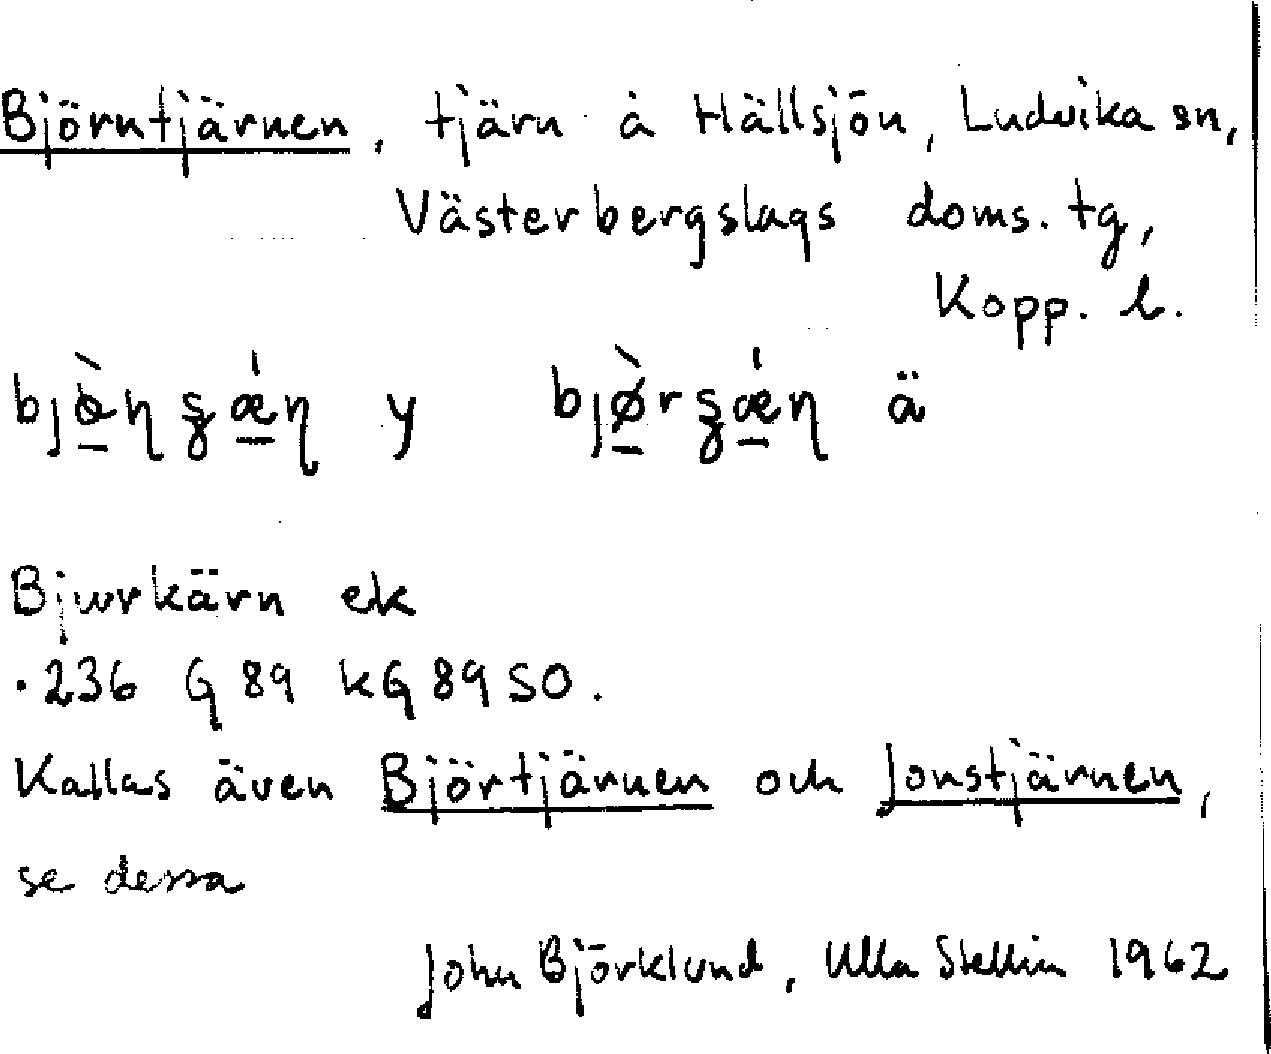 Björntjärnen, tjärn å Hällsjön, Ludvika sn,
Västerbergslags doms. tg,
Kopp. l.
y ä
Bjurkärn ek
.236 G 89 kG 89 SO.
Kallas även Björtjärnen och Jonstjärnen,
se dessa
John Björklund, Ulla Stellin 1962